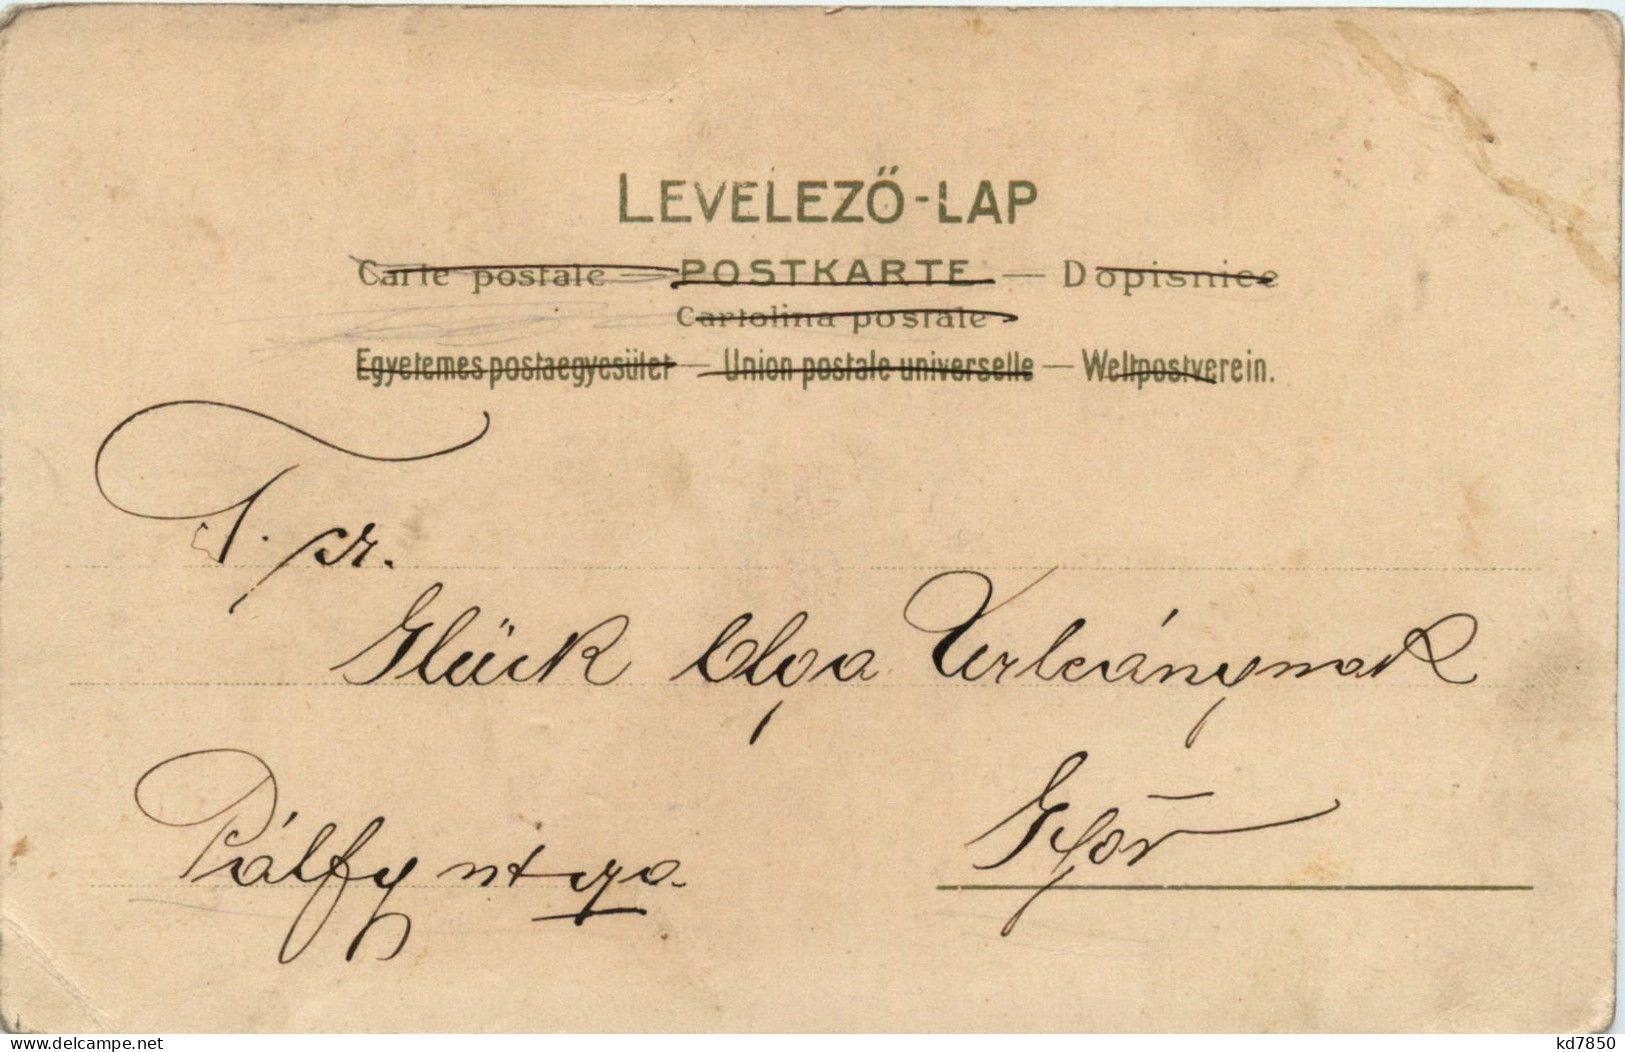 LEVELEZŐ-LAP
Carte postale — POSTKARTE — Dopisnice
Cartolina postale
Egyetemes postaegyesület — Union postale universelle — Weltpostverein.
T. pr.
Glück Olga Urleánynak
Győr
Pálfy utca
www.delcampe.net
kd7850